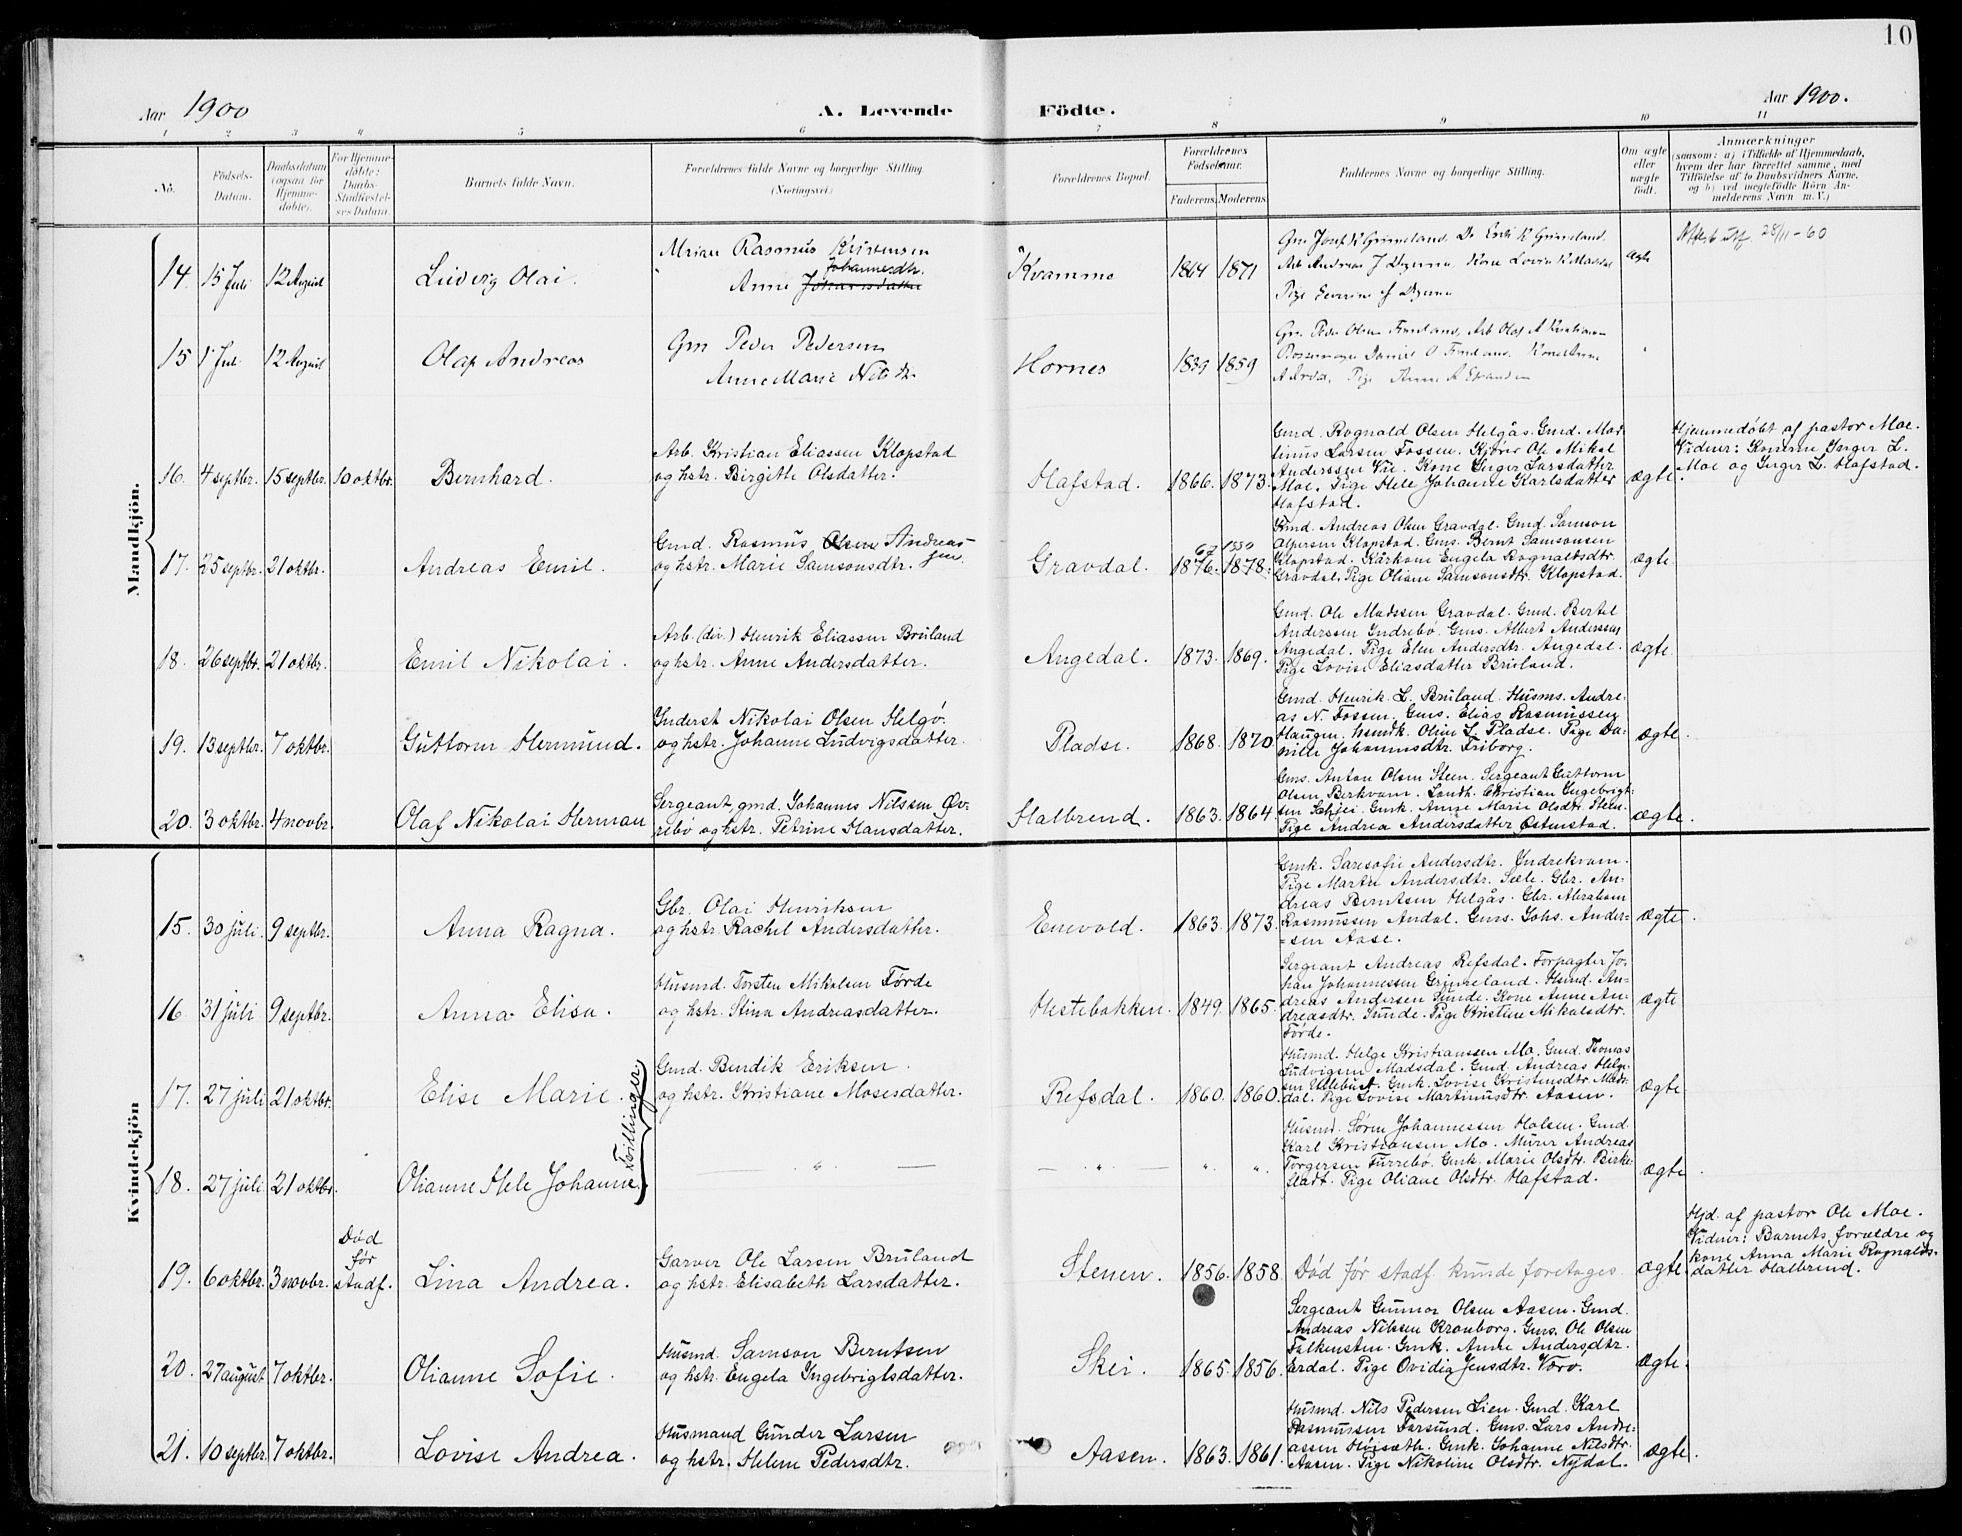 10
Aar 1900
A. Levende Födte.
Aar 1900.
1 2 3 4 5 6 7 8 9 10 11
No.
Födsels-
Datum.
Daabsdatum
(ogsaa for
Hjemme-
døbte).
For Hjemme-
döbte:
Daabs-
Stadfæstel-
ses Datum.
Barnets fulde Navn.
Forældrenes fulde Navne og borgerlige Stilling.
(Næringsvei.)
Forældrenes Bopæl.
Forældrenes
Födselsaar.
Faderens. Moderens.
Faddernes Navne og borgerlige Stilling.
Om ægte
eller
uægte
født.
Anmærkninger
(saasom: a) i Tilfælde af Hjemmedaab,
hvem der har forrettet samme, med
Tilföielse af to Daabsvidners Navne,
og b) ved uægtefödte Börn An-
melderens Navn m. V.)
Mandkjön.
14. 15 Juli 12 August
Ludvig Olai.
Rasmus Kristensen
Johannesdtr.
Anne
Kvamme
1864 1871
Grm Josef K Grimeland. Do Erik K Grimeland
Arb Andreas J
ægte
28/11-60
15 1 Juli 12 August
Olaf Andreas
Grm Peder Pedersen
Anne Marie Nilsdtr.
Hornes
1839 1859
16. 4 septbr. 15 septbr. 10 oktbr.
Bernhard.
Arb. Kristian Eliassen Klopstad
og hstr. Birgitte Olsdatter.
Hafstad. 1866. 1873.
Gmd. Ragnald Olsen Helgås. Gmd. Mar-
tinus Larsen Fossen. Kjører Ole Mikal
Anderssen Vie. Kone Inger Larsdatter
Moe. Pige Hele Johanne Karlsdatter
Hafstad.
ægte
Hjemmedöbt af pastor Moe.
Vidner: Konerne Inger L.
Moe og Inger L. Hafstad.
17. 25 septbr. 21 oktbr.
Andreas Emil.
Gmd. Rasmus Olsen Andreas-
sen.
og hstr. Marie Samsonsdtr.
Gravdal. 1876. 1878.
Gmd. Andreas Olsen Gravdal. Gmd. Samson
Klopstad. Gms. Bernt Samsonsen
Klopstad. Kårkone Engela Ragnaldsdtr.
Gravdal. Pige Oliane Samsonsdtr. Klopstad.
ægte
18. 26 septbr. 21 oktbr.
Emil Nikolai.
Arb. (div.) Henrik Eliassen Bruland
og hstr. Anne Andersdatter.
Angedal. 1873. 1869.
Gmd. Ole Madssen Gravdal. Gmd. Bertel
Anderssen Indrebö. Gms. Albert Anderssen
Angedal. Pige Elen Andersdtr. Angedal.
Pige Lovise Eliasdatter Bruland.
ægte
19. 13 septbr. 7 oktbr.
Guttorm Hermund.
Inderst Nikolai Olsen Helgö.
og hstr. Johanne Ludvigsdatter.
Pladse. 1868. 1870
Gmd. Henrik L. Bruland. Husms. Andre-
as N. Fossen. Gms. Elias Rasmussen
Haugen. Olive L. Pladse. Pige Da-
nielle Johannesdtr. Friborg.
ægte.
20. 3 oktbr. 4 novbr.
Olaf Nikolai Herman
Sergeant, gmd. Johannes Nilssen Øv-
rebö og hstr. Petrine Hansdatter.
Halbrend. 1863. 1864.
Gms. Anton Olsen Steen. Sergeant Guttorm
Olsen Birkvam. Landh. Christian Ingebrigt-
sen Schjei. Gmk. Anne Marie Olsdtr. Steen.
Pige Andrea Andersdatter Østenstad.
ægte.
Kvindekjön
15. 30 juli. 9 septbr.
Anna Ragna.
Gbr. Olai Henriksen
og hstr. Rachel Andersdatter.
Enevold. 1863. 1873.
Gmk. Saresofie Andersdtr. Indrekvam.
Pige Marthe Andersdtr. Sæle. Gbr. An-
dreas Berntsen Helgås. Gbr. Abraham
Rasmussen Andal. Gms. Johs. Ander-
=sen Aase.
ægte.
16. 31 juli 9 septbr.
Anna Elisa.
Husmd. Torsten Mikalsen Förde
og hstr. Stina Andreasdatter.
Hestebakken. 1849. 1865.
Sergeant Andreas Refsdal. Forpagter Jo-
han Johannessen Grimeland. Husmd. An-
dreas Andersen Sunde. Kone Anne An-
dreasdtr. Sunde. Pige Kristine Mikalsdtr.
Förde.
ægte
17. 27 juli 21 oktbr.
Elise Marie.
Tvillinger
Gmd. Bendik Eriksen.
og hstr. Kristiane Mosesdatter.
Refsdal. 1860. 1860.
Husmd. Helge Kristianssen Mo. Gmd. Thomas
Ludvigsen Madsdal. Gmd. Andreas Helge-
sen Ullebust. Gmk. Lovise Kristensdtr. Mads-
dal. Pige Lovise Martinusdtr. Aasen.
ægte
18. 27 juli. 21 oktbr.
Olianne Hele Johanne.
— " —
— " — " ".
Husmd. Sören Johannessen Halsen. Gmd.
Karl Kristiansen Mo. Murer Andreas
Torgersen Furrebö. Gmk. Marie Olsdtr. Birke-
stadt. Pige Oliane Olsdtr. Hafstad.
ægte.
19. 6 oktbr. 3 novbr.
Død
før
stadf.
Lina Andrea.
Garver Ole Larsen Bruland
og hstr. Elisabeth Larsdatter.
Stenen. 1856. 1858.
Död för stadf. kunde foretages
ægte
Hjd. af pastor Ole Moe.
Vidner: Barnets forældre og
kone Anna Marie Ragnalds-
datter Halbrend.
20. 27 august 7 oktbr.
Olianne Sofie.
Husmd. Samson Berntsen
og hstr. Engela Ingebrigtsdatter.
Skei. 1865. 1856.
Sergeant Gunnar Olsen Aasen. Gmd.
Andreas Nilssen Kronborg. Gms. Ole Olsen
Falkensten. Gmk. Anne Andersdtr.
Erdal. Pige Ovidia Jensdtr. Voro.
ægte.
21. 10 septbr. 7 oktbr.
Lovise Andrea.
Husmand Gunder Larsen
og hstr. Helene Pedersdtr.
Aasen. 1863. 1861.
Husmd. Nils Pedersen Lien. Gmd. Karl
Rasmussen Farsund. Gms. Lars Andre-
assen Höisæth. Gmk. Johanne Nilsdtr.
Aasen. Pige Nikoline Olsdtr. Nydal.
ægte.